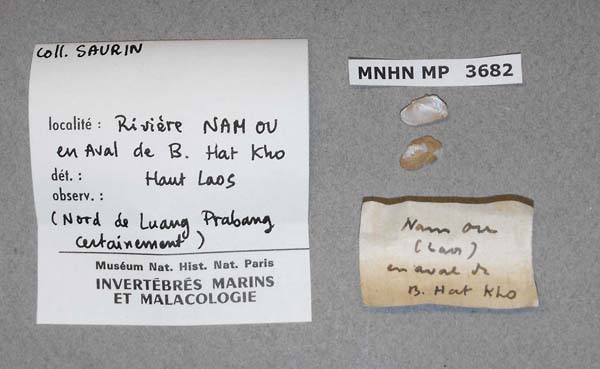 Coll. SAURIN
localité : Rivière NAM OU
en Aval de B. Hat Kho
dét. : Haut Laos
observ. :
(Nord de Luang Prabang
certainement)
Muséum Nat. Hist. Nat. Paris
INVERTÉBRÉS MARINS
ET MALACOLOGIE
MNHN MP 3682
Nam ou
(Laos)
en aval de
B. Hat Kho